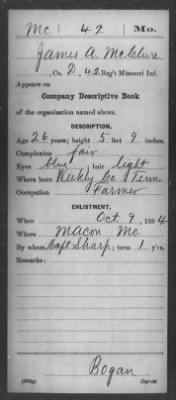 Mc | 42 | Mo.
James A. McClure
, Co. D, 42 Reg't Missouri Inf.
Appears on
Company Descriptive Book
of the organization named above.
DESCRIPTION.
Age 26 years; height 5 feet 9 inches.
Complexion fair
Eyes blue; hair light
Where born Weekly Co Tenn
Occupation Farmer
ENLISTMENT.
When Oct. 9, 1864
Where Macon Mo.
By whom Capt Sharp; term 1 y'rs.
Remarks:
Bogan
Copyist